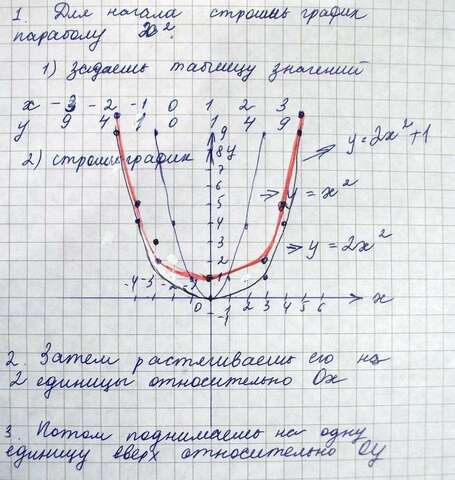 1. Для начала строишь график
параболу x².
1) Задаешь таблицу значений
x -3 -2 -1 0 1 2 3
y 9 4 1 0 1 4 9
2) строишь график
9
8 y
7
6
5
4
3
2
1
y = 2x² + 1
y = x²
y = 2x²
-4 -3 -2 -1 0 1 2 3 4 5 6 x
-1
2. Затем растягиваешь его на
2 единицы относительно Ox
3. Потом поднимаешь на одну
единицу вверх относительно Oy